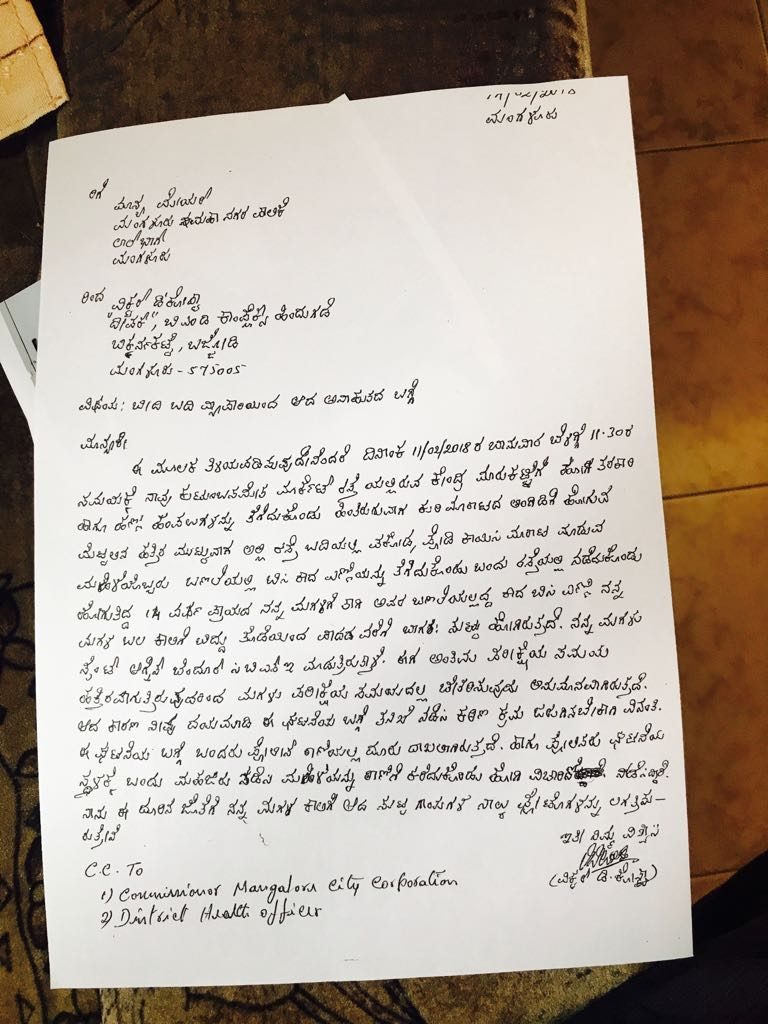 ಮಂಗಳೂರು
ರಿಗೆ
ಮಾನ್ಯ ಮೇಯರ್
ಮಂಗಳೂರು ಮಹಾ ನಗರ ಪಾಲಿಕೆ
ಲಾಲ್‌ಭಾಗ್
ಮಂಗಳೂರು
ರಿಂದ
"ದೀಪಕ್", ಬಿ ಎಂ ಡಿ ಕಾಂಪ್ಲೆಕ್ಸ್ ಹಿಂದುಗಡೆ
ಬಿಕರ್ನಕಟ್ಟೆ, ಬಜ್ಜೋಡಿ
ಮಂಗಳೂರು - 575005
ವಿಷಯ: ಬೀದಿ ಬದಿ ವ್ಯಾಪಾರಿಯಿಂದ ಆದ ಅನಾಹುತದ ಬಗ್ಗೆ
ಮಾನ್ಯರೇ
ಈ ಮೂಲಕ ತಿಳಿಯಪಡಿಸುವುದೇನೆಂದರೆ ದಿನಾಂಕ 11/02/2018 ರ ಬಾನುವಾರ ಬೆಳಗ್ಗೆ 11.30ರ
ಸಮಯಕ್ಕೆ ನಾವು ಕುಟುಂಬಸಮೇತ ಮಾರ್ಕೆಟ್ ರಸ್ತೆ ಯಲ್ಲಿರುವ ಕೇಂದ್ರ ಮಾರುಕಟ್ಟೆಗೆ ಹೋಗಿ ತರಕಾರಿ
ಹಾಗೂ ಹಣ್ಣು ಹಂಪಲುಗಳನ್ನು ತೆಗೆದುಕೊಂಡು ಹಿಂತಿರುಗುವಾಗ ಕುರಿ ಮಾರಾಟದ ಅಂಗಡಿಗೆ ಹೋಗುವ
ಮೆಟ್ಟಲಿನ ಹತ್ತಿರ ಮುಟ್ಟುವಾಗ ಅಲ್ಲಿ ರಸ್ತೆ ಬದಿಯಲ್ಲಿ ಪಕೋಡ, ಪೋಡಿ ಕಾಯಿಸಿ ಮಾರಾಟ ಮಾಡುವ
ಮಹಿಳೆಯೊಬ್ಬರು ಬಣಲೆಯಲ್ಲಿ ಬಿಸಿ ಕಾದ ಎಣ್ಣೆಯನ್ನು ತೆಗೆದುಕೊಂಡು ಬಂದು ರಸ್ತೆಯಲ್ಲಿ ನಡೆದುಕೊಂಡು
ಹೋಗುತ್ತಿದ್ದ 14 ವರ್ಷ ಪ್ರಾಯದ ನನ್ನ ಮಗಳಿಗೆ ತಾಗಿ ಅವರ ಬಣಲೆಯಲ್ಲಿದ್ದ ಕಾದ ಬಿಸಿ ಎಣ್ಣೆ ನನ್ನ
ಮಗಳ ಬಲ ಕಾಲಿಗೆ ಬಿದ್ದು ತೊಡೆಯಿಂದ ಪಾದದ ವರೆಗೆ ಬಾಗಶ: ಸುಟ್ಟು ಹೋಗಿರುತ್ತದೆ. ನನ್ನ ಮಗಳು
ಸೈಂಟ್ ಆಗ್ನೆಸ್ ಬೆಂದೂರ್ ಸಿ ಬಿ ಎಸ್ ಇ ಮಾಡುತ್ತಿರುತ್ತಾಳೆ. ಈಗ ಅಂತಿಮ ಪರೀಕ್ಷೆಯ ಸಮಯ
ಹತ್ತಿರವಾಗುತ್ತಿರುವುದರಿಂದ ಮಗಳು ಪರೀಕ್ಷೆಯ ಸಮಯದಲ್ಲಿ ಚೇತರಿಸುವುದು ಅನುಮಾನವಾಗಿರುತ್ತದೆ.
ಆದ ಕಾರಣ ನೀವು ದಯಮಾಡಿ ಈ ಘಟನೆಯ ಬಗ್ಗೆ ತನಿಖೆ ನಡೆಸಿ ಕಠಿಣ ಕ್ರಮ ಜರುಗಿಸಬೇಕಾಗಿ ವಿನಂತಿ.
ಈ ಘಟನೆಯ ಬಗ್ಗೆ ಬಂದರು ಪೋಲಿಸ್ ಠಾಣೆಯಲ್ಲಿ ದೂರು ದಾಖಲಾಗಿರುತ್ತದೆ. ಹಾಗೂ ಪೋಲಿಸರು ಘಟನೆಯ
ಸ್ಥಳಕ್ಕೆ ಬಂದು ಮಹಜರು ನಡೆಸಿ ಮಹಿಳೆಯನ್ನು ಠಾಣೆಗೆ ಕರೆದುಕೊಂಡು ಹೋಗಿ
ನಾನು ಈ ದೂರಿನ ಜೊತೆಗೆ ನನ್ನ ಮಗಳ ಕಾಲಿಗೆ ಆದ ಸುಟ್ಟ ಗಾಯಗಳ ನಾಲ್ಕು ಫೋಟೊಗಳನ್ನು ಲಗತ್ತಿಸಿ-
ರುತ್ತೇನೆ
ಇತೀ ನಿಮ್ಮ ವಿಶ್ವಾಸಿ
(ವಿಕ್ಟರ್ ಡಿ.ಕೋಸ್ಟಾ)
C.C. To
1) Commissionor Mangaloru City Corporation
2) District Health officer